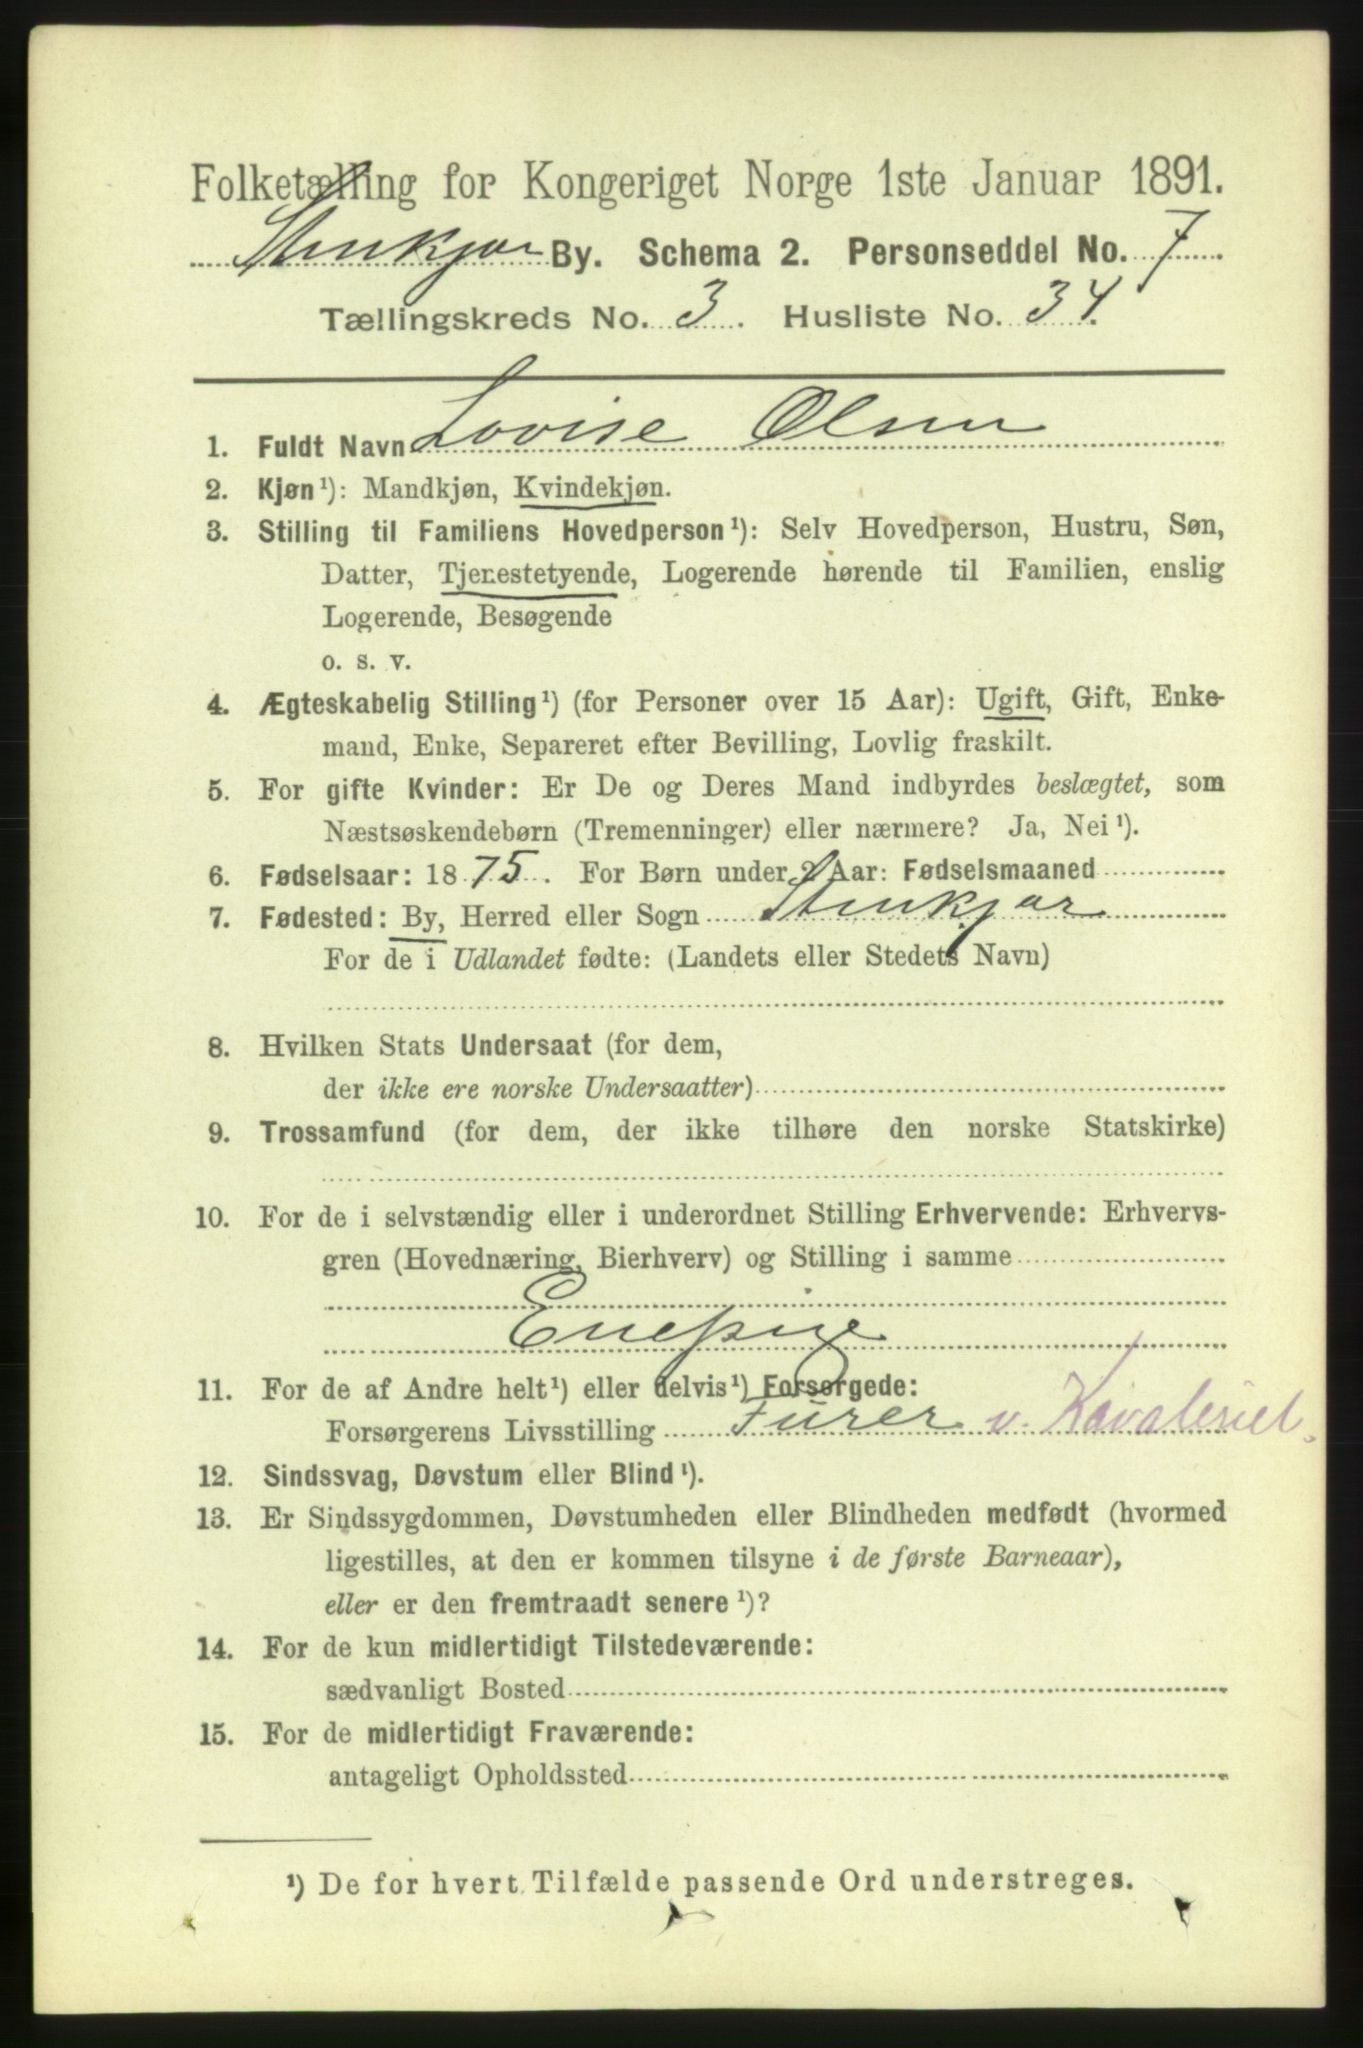 Folketælling for Kongeriget Norge 1ste Januar 1891.
Stenkjær By. Schema 2. Personseddel No. 7
Tællingskreds No. 3. Husliste No. 34.
1. Fuldt Navn Lovise Olsen
2. Kjøn¹): Mandkjøn, Kvindekjøn.
3. Stilling til Familiens Hovedperson¹): Selv Hovedperson, Hustru, Søn,
Datter, Tjenestetyende, Logerende hørende til Familien, enslig
Logerende, Besøgende
o. s. v.
4. Ægteskabelig Stilling¹) (for Personer over 15 Aar): Ugift, Gift, Enke-
mand, Enke, Separeret efter Bevilling, Lovlig fraskilt.
5. For gifte Kvinder: Er De og Deres Mand indbyrdes beslægtet, som
Næstsøskendebørn (Tremenninger) eller nærmere? Ja, Nei¹).
6. Fødselsaar: 1875. For Børn under 2 Aar: Fødselsmaaned
7. Fødested: By, Herred eller Sogn Stenkjær
For de i Udlandet fødte: (Landets eller Stedets Navn)
8. Hvilken Stats Undersaat (for dem,
der ikke ere norske Undersaatter)
9. Trossamfund (for dem, der ikke tilhøre den norske Statskirke)
10. For de i selvstændig eller i underordnet Stilling Erhvervende: Erhvervs-
gren (Hovednæring, Bierhverv) og Stilling i samme
Enepige
11. For de af Andre helt¹) eller delvis¹) Forsørgede:
Forsørgerens Livsstilling Furer v.
12. Sindssvag, Døvstum eller Blind¹).
13. Er Sindssygdommen, Døvstumheden eller Blindheden medfødt (hvormed
ligestilles, at den er kommen tilsyne i de første Barneaar),
eller er den fremtraadt senere¹)?
14. For de kun midlertidigt Tilstedeværende:
sædvanligt Bosted
15. For de midlertidigt Fraværende:
antageligt Opholdssted
¹) De for hvert Tilfælde passende Ord understreges.